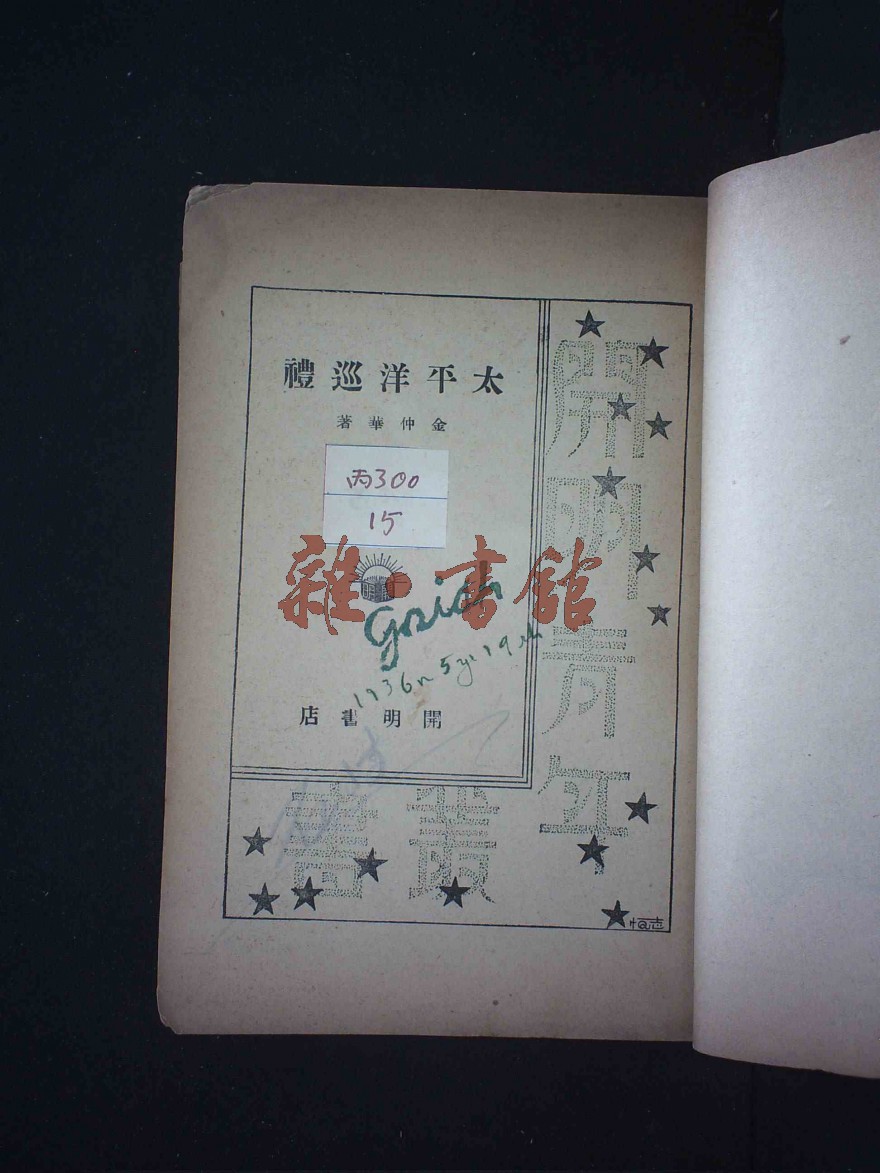 太平洋巡禮
金仲華著
丙300
15
雜·書館
開明書店
開明青年
叢書